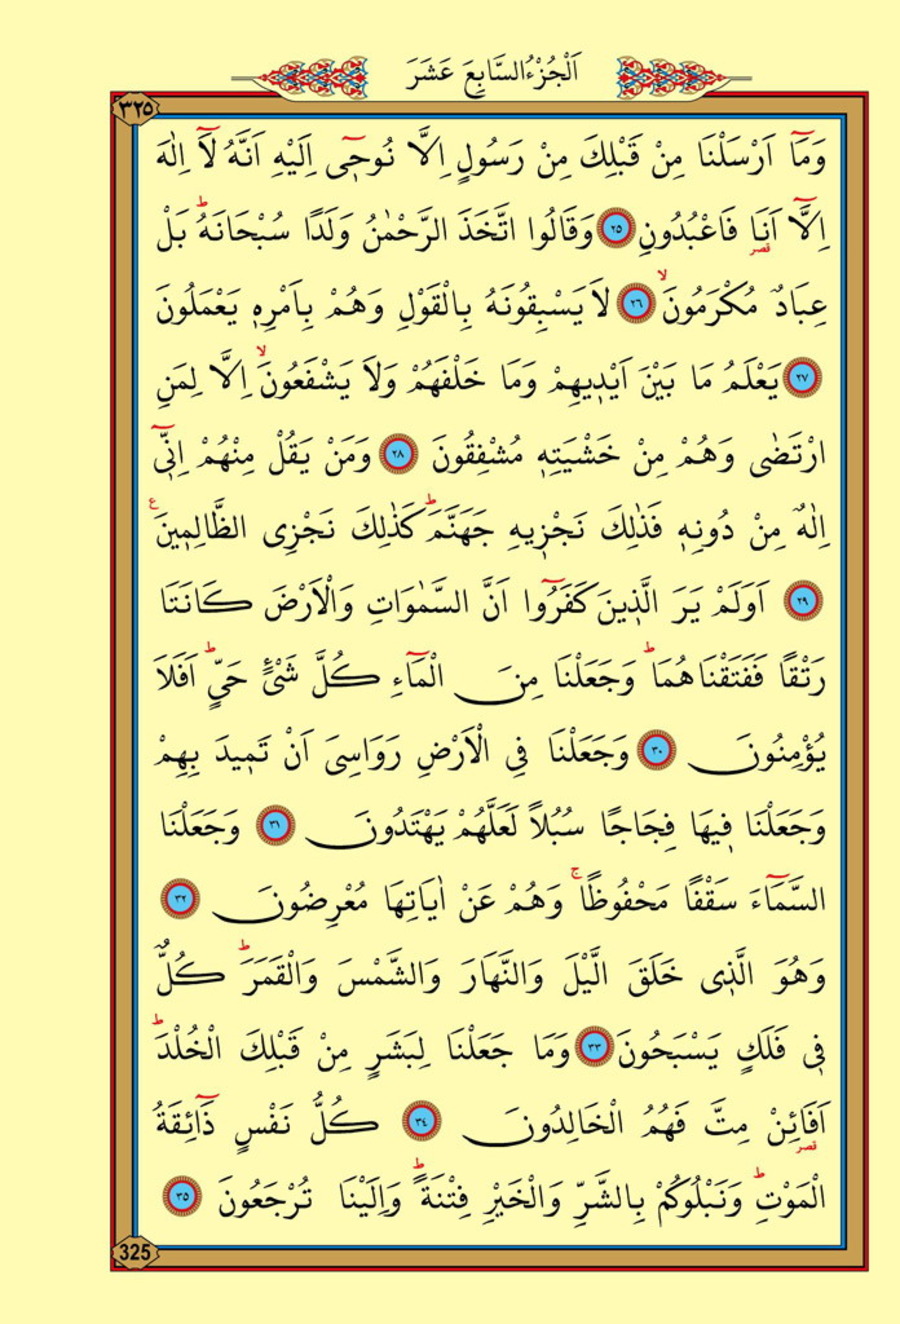 اَلْجُزْءُ السَّابِعَ عَشَرَ
٣٢٥
وَمَٓا اَرْسَلْنَا مِنْ قَبْلِكَ مِنْ رَسُولٍ اِلَّا نُوحٖٓى اِلَيْهِ اَنَّهُ لَٓا اِلٰهَ
اِلَّٓا اَنَا۬ فَاعْبُدُونِ ٢٥ وَقَالُوا اتَّخَذَ الرَّحْمٰنُ وَلَدًا سُبْحَانَهُؕ بَلْ
قصر
عِبَادٌ مُكْرَمُونَۙ ٢٦ لَا يَسْبِقُونَهُ بِالْقَوْلِ وَهُمْ بِاَمْرِهٖ يَعْمَلُونَ
٢٧ يَعْلَمُ مَا بَيْنَ اَيْدٖيهِمْ وَمَا خَلْفَهُمْ وَلَا يَشْفَعُونَۙ اِلَّا لِمَنِ
ارْتَضٰى وَهُمْ مِنْ خَشْيَتِهٖ مُشْفِقُونَ ٢٨ وَمَنْ يَقُلْ مِنْهُمْ اِنّٖٓى
اِلٰهٌ مِنْ دُونِهٖ فَذٰلِكَ نَجْزٖيهِ جَهَنَّمَؕ كَذٰلِكَ نَجْزِى الظَّالِمٖينَ ع
٢٩ اَوَلَمْ يَرَ الَّذٖينَ كَفَرُٓوا اَنَّ السَّمٰوَاتِ وَالْاَرْضَ كَانَتَا
رَتْقًا فَفَتَقْنَاهُمَاؕ وَجَعَلْنَا مِنَ الْمَٓاءِ كُلَّ شَيْءٍ حَيٍّؕ اَفَلَا
يُؤْمِنُونَ ٣٠ وَجَعَلْنَا فِي الْاَرْضِ رَوَاسِىَ اَنْ تَمٖيدَ بِهِمْ
وَجَعَلْنَا فٖيهَا فِجَاجًا سُبُلًا لَعَلَّهُمْ يَهْتَدُونَ ٣١ وَجَعَلْنَا
السَّمَٓاءَ سَقْفًا مَحْفُوظًاۚ وَهُمْ عَنْ اٰيَاتِهَا مُعْرِضُونَ ٣٢
وَهُوَ الَّذٖى خَلَقَ الَّيْلَ وَالنَّهَارَ وَالشَّمْسَ وَالْقَمَرَؕ كُلٌّ
فٖى فَلَكٍ يَسْبَحُونَ ٣٣ وَمَا جَعَلْنَا لِبَشَرٍ مِنْ قَبْلِكَ الْخُلْدَؕ
اَفَا۬ئِنْ مِتَّ فَهُمُ الْخَالِدُونَ ٣٤ كُلُّ نَفْسٍ ذَٓائِقَةُ
قصر
الْمَوْتِؕ وَنَبْلُوكُمْ بِالشَّرِّ وَالْخَيْرِ فِتْنَةًؕ وَاِلَيْنَا تُرْجَعُونَ ٣٥
325